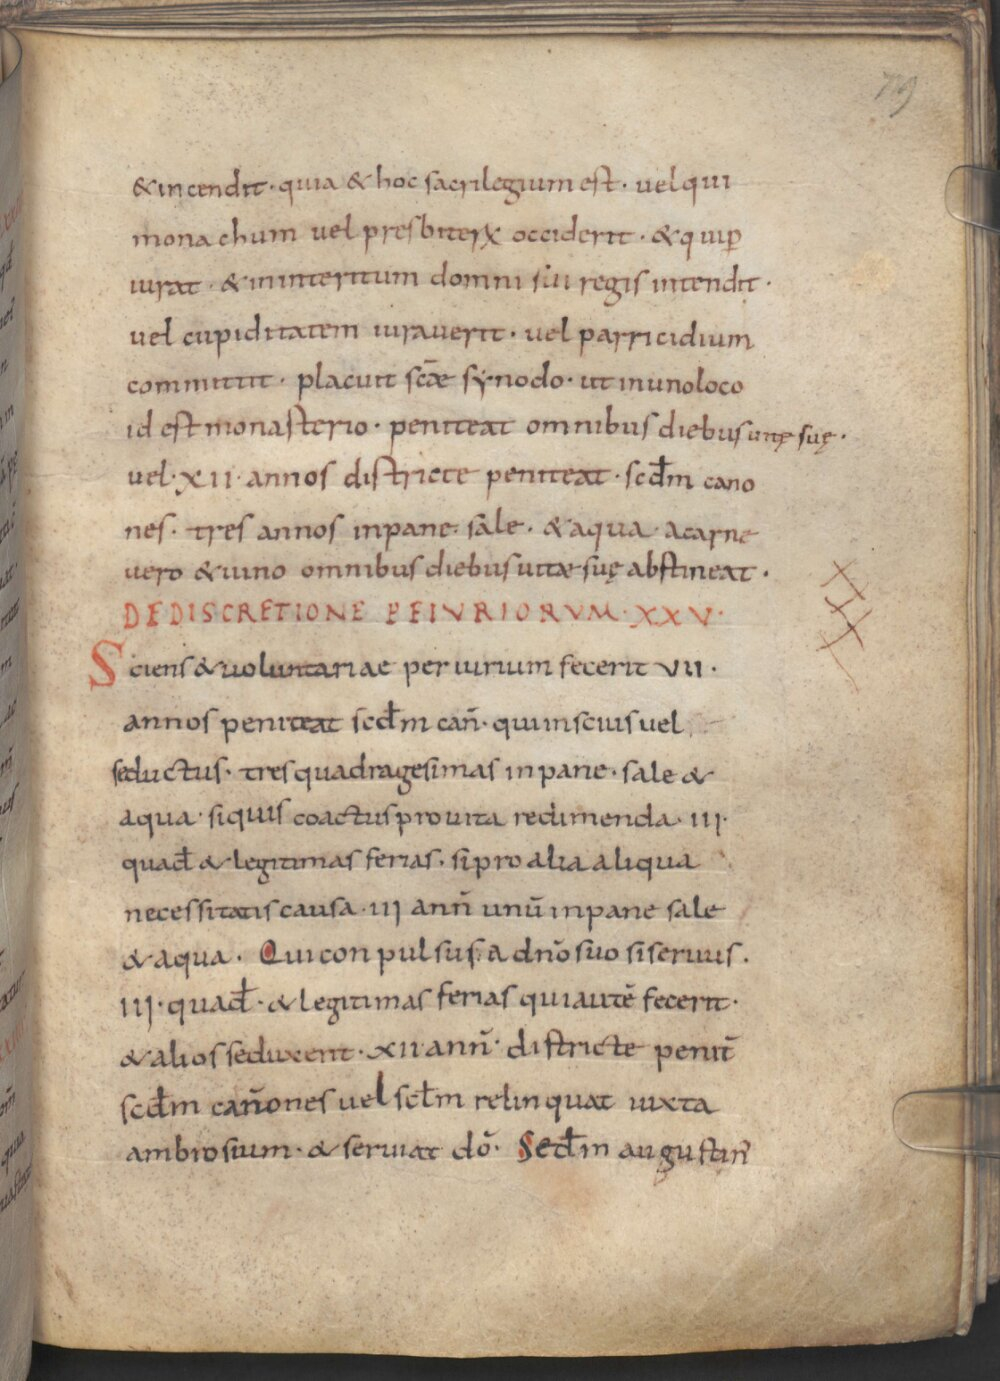 79
& incendit · quia & hoc sacrilegium est · vel qui
monachum vel presbiterū occiderit · & qui p̄
iurat · & in interitum domni sui regis intendit ·
vel cupiditatem iuraverit · vel parricidium
committit · placuit sc̄ae synodo · ut in uno loco
id est monasterio · peniteat omnibus diebus uitę suę ·
vel · XII · annos districte peniteat · scd̄m cano
nes · tres annos in pane · sale · & aqua · a carne
vero & uino omnibus diebus uitae suę abstineat ·
DE DISCRETIONE PEIURIORUM · XXV ·
Sciens & voluntariae periurium fecerit VII ·
annos peniteat scd̄m can̄ · qui inscius vel
seductus · tres quadragesimas in pane · sale &
aqua · si quis coactus pro uita redimenda · III ·
quad̄ & legitimas ferias · si pro alia aliqua
necessitatis causa · III ann̄ unū in pane sale
& aqua · Qui conpulsus · a dn̄o suo si seruus ·
III · quad̄ · & legitimas ferias qui autē fecerit ·
& alios seduxerit · XII · ann̄ · districte penit̄
scd̄m cañones vel scd̄m relinquat iuxta
ambrosium · & seruiat dō · Secd̄m augustin̄